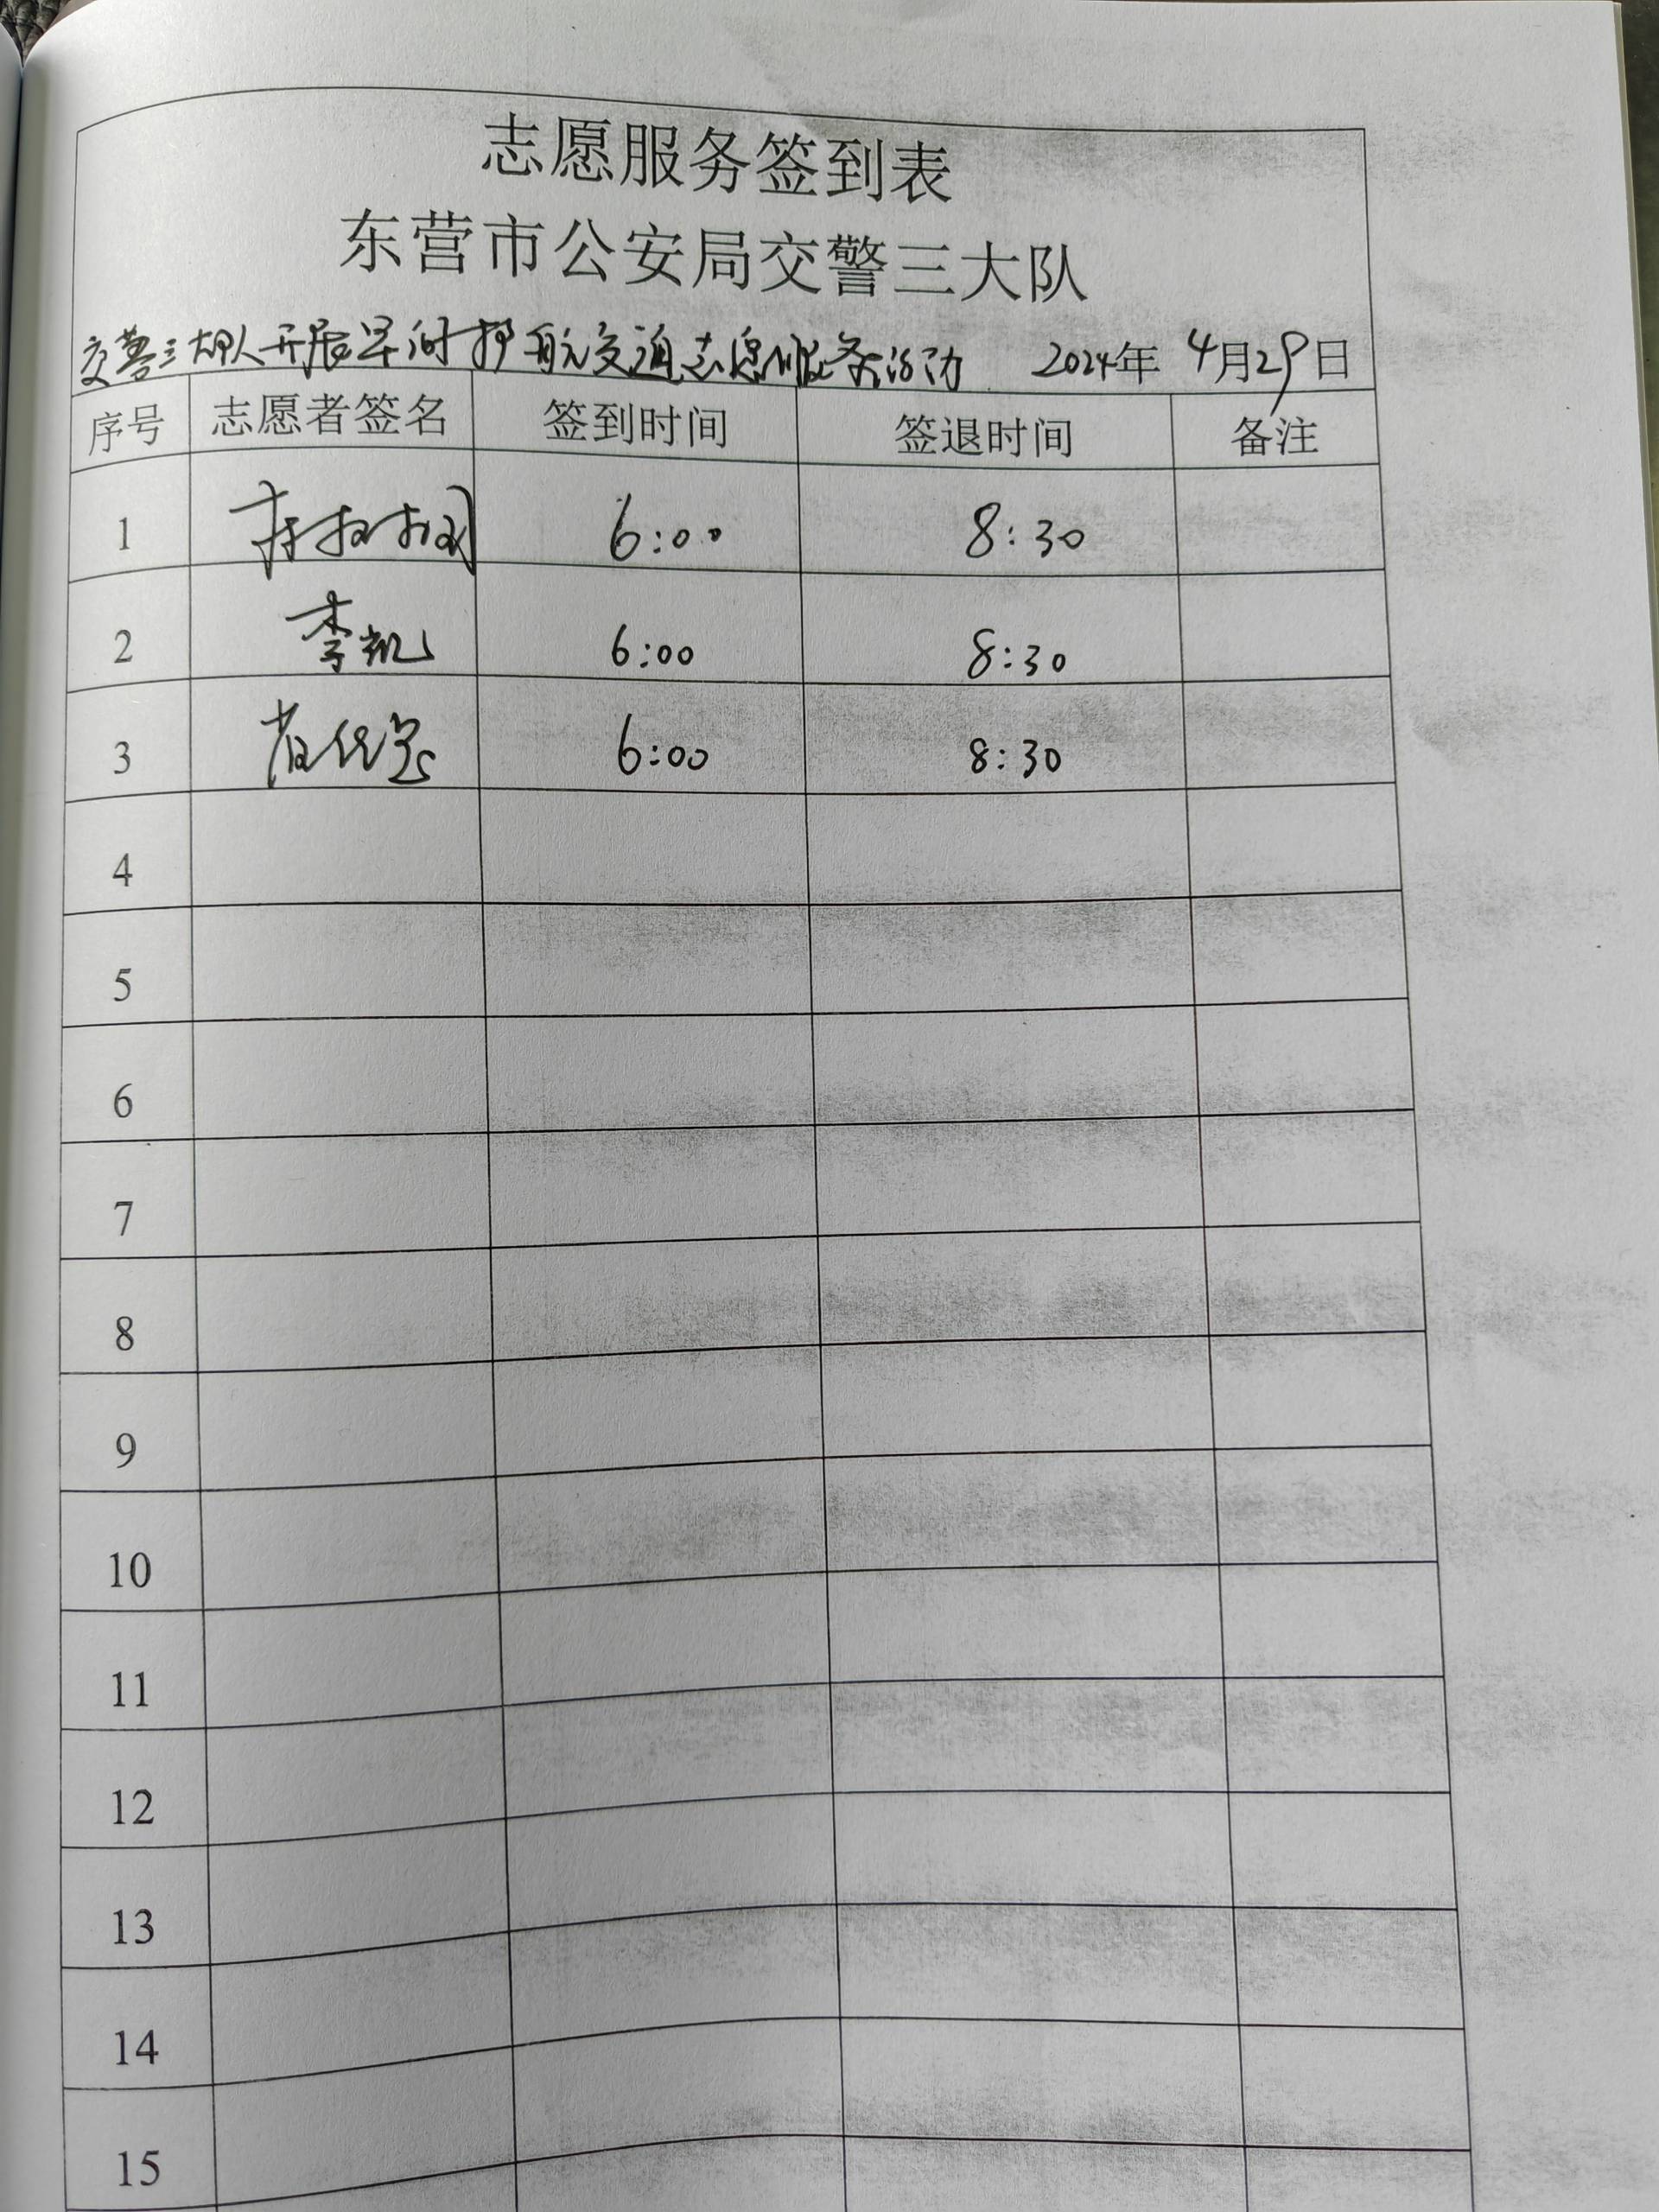 志愿服务签到表
东营市公安局交警三大队
交警三大队开展早间护航交通志愿服务活动 2024年 4月29日
序号 志愿者签名 签到时间 签退时间 备注
1 6:00 8:30
2 李凯 6:00 8:30
3 6:00 8:30
4
5
6
7
8
9
10
11
12
13
14
15